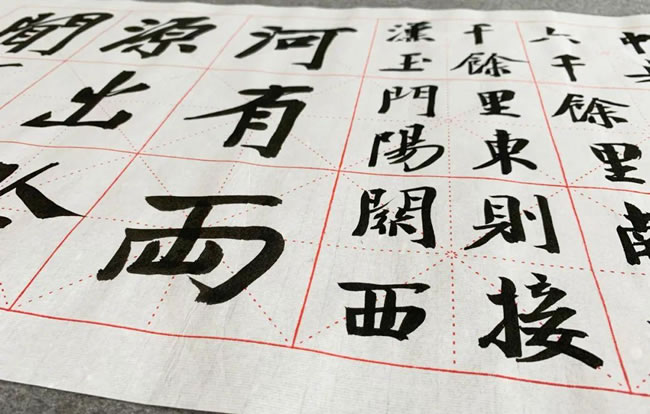 六千餘里南
千餘里東則接
漢玉門陽關西
河有兩
源出
聞